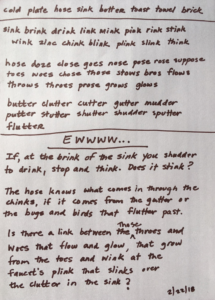 cold plate hose sink butter toast towel brick
sink brink drink link wink pink rink stink
wink zinc chink blink plink slink think
hose doze close goes nose pose rose suppose
toes woes chose those stows bros flows
throws throes prose grows glows
butter clutter cutter gutter mudder
putter stutter shutter shudder sputter
flutter
EWWWW...
If, at the brink of the sink you shudder
to drink, stop and think. Does it stink?
The hose knows what comes in through the
chinks, if it comes from the gutter or
the bugs and birds that flutter past.
Is there a link between the those throes and
woes that flow and glow, that grow
from the toes and wink at the
faucet's plink that slinks over
the clutter in the sink?
2/22/18